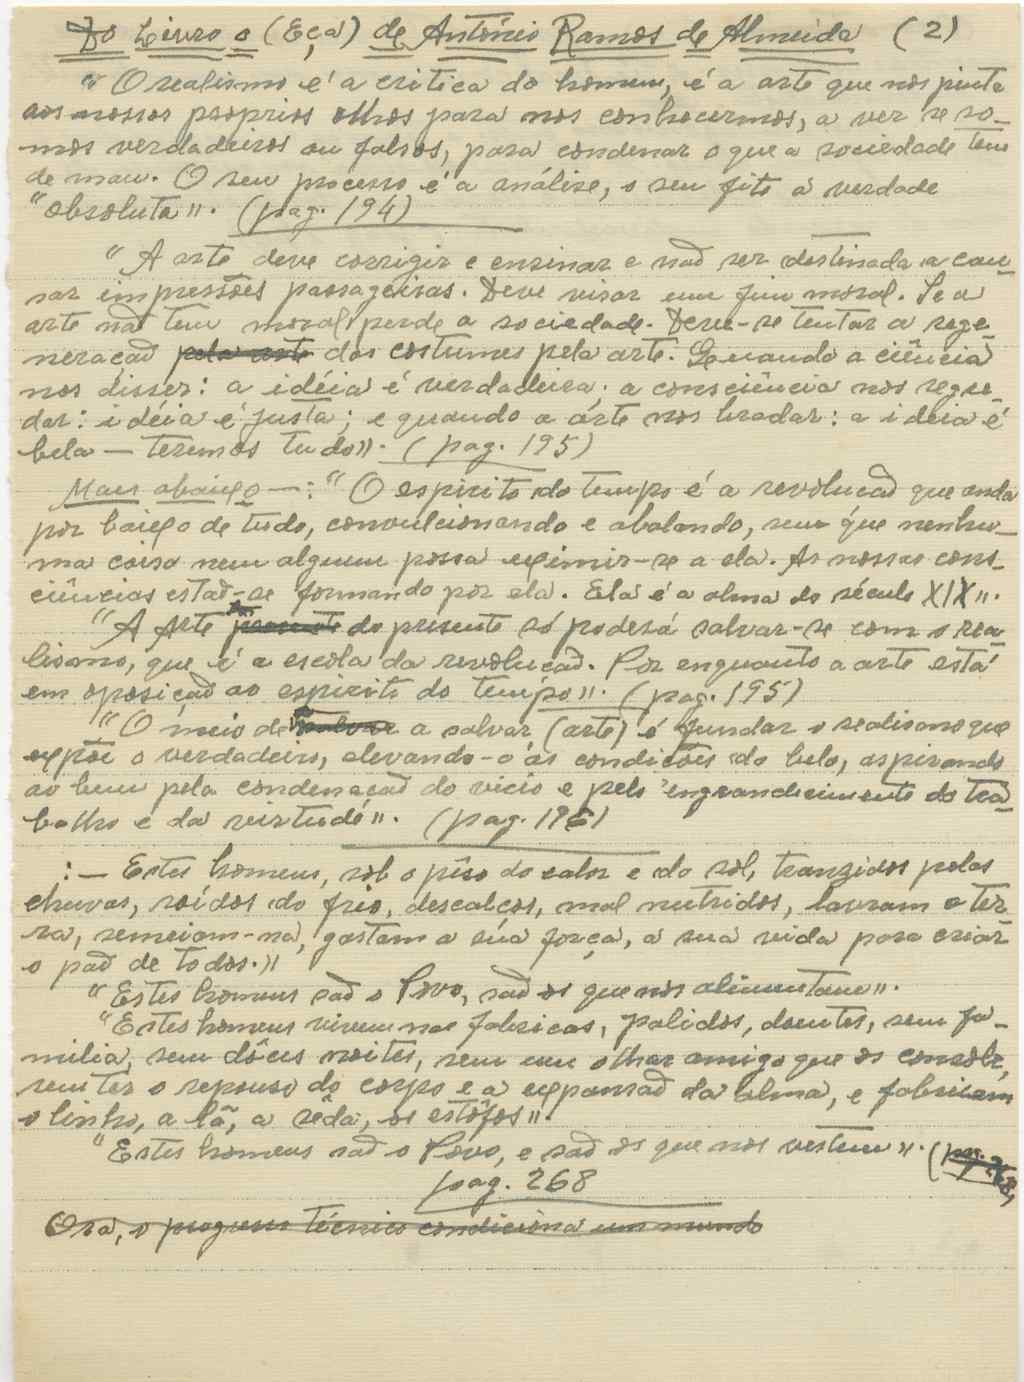 Do Livro o (Eça) de António Ramos de Almeida (2)
"O realismo é a critica do homem, é a arte que nos pinta
aos nossos proprios olhos para nos conhecermos, a ver se so-
mos verdadeiros ou falsos, para condenar o que a sociedade tem
de mau. O seu processo é a análise, o seu fito a verdade
"absoluta". (pag. 194)
"A arte deve corrigir e ensinar e não ser destinada a cau-
sar impressões passageiras. Deve visar um fim moral. Se a
arte não tem moral, perde a sociedade. Deve-se tentar a rege-
neração pela arte dos costumes pela arte. Quando a ciência
nos disser: a idéia é verdadeira; a consciência nos segre-
dar: idéia é justa; e quando a arte nos bradar: a idéia é
bela — teremos tudo". (pag. 195)
Mais abaixo —: "O espirito do tempo é a revolução que anda
por baixo de tudo, convulcionando e abalando, sem que nenhu-
ma coisa nem alguem possa eximir-se a ela. As nossas cons-
ciências estão-se formando por ela. Ela é a alma do século XIX".
"A Arte presente do presente só poderá salvar-se com o rea-
lismo, que é a escola da revolução. Por enquanto a arte está
em oposição ao espirito do tempo". (pag. 195)
"O meio de salvar a salvar (arte) é fundar o realismo que
expõe o verdadeiro, elevando-o às condições do belo, aspirando
ao bem pela condenação do vicio e pelo engrandecimento do tra-
balho e da virtude". (pag. 196)
:— Estes homens, sob o pêso do calor e do sol, tranzidos pelas
chuvas, roídos do frio, descalços, mal nutridos, lavram a ter-
ra, semeiam-na, gastam a sua força, a sua vida para criar
o pão de todos."
"Estes homens são o Povo, são os que nos alimentam".
"Estes homens vivem nas fabricas, palidos, doentes, sem fa-
milia, sem dôces noites, sem um olhar amigo que os console,
sem ter o repouso do corpo e a expansão da alma, e fabricam
o linho, a lã, a sêda, os estôfos".
"Estes homens são o Povo, e são os que nos vestem". (pag. 268)
pag. 268
Ora, o progresso técnico condiciona um mundo